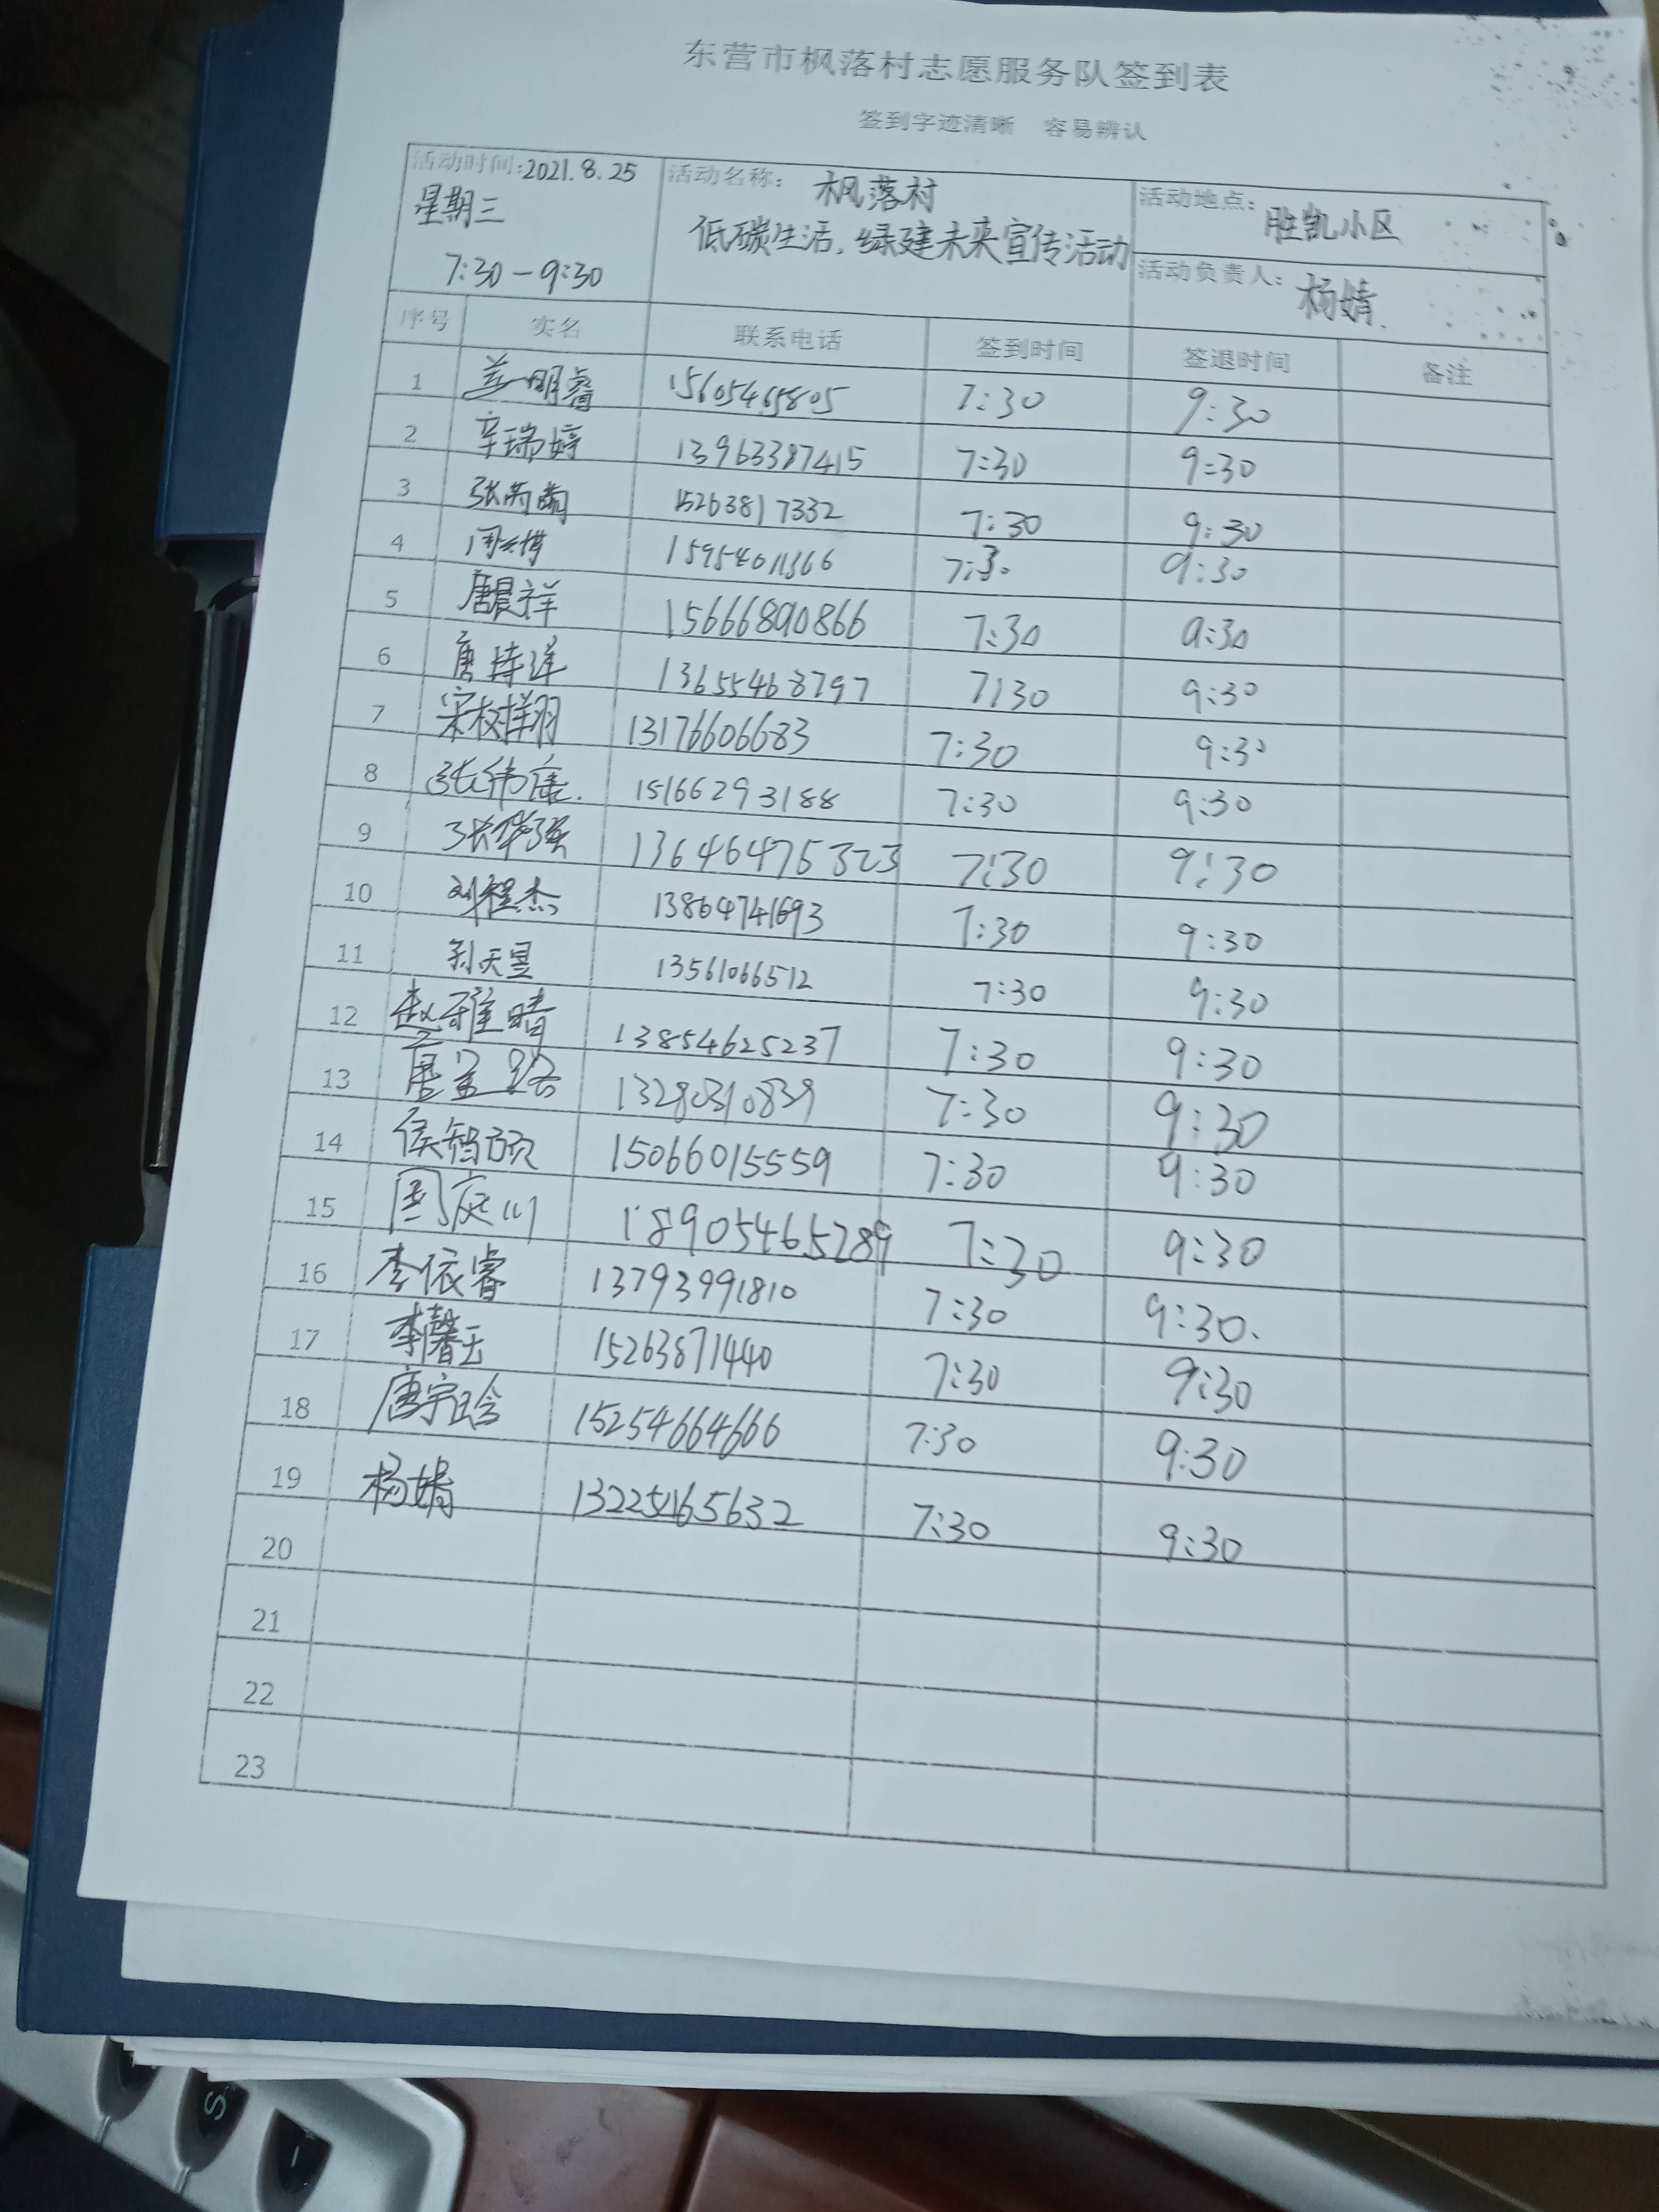 东营市枫落村志愿服务队签到表
签到字迹清晰 容易辨认
活动时间:2021.8.25 星期三 7:30-9:30
活动名称: 枫落村 低碳生活,绿建未来宣传活动
活动地点: 胜凯小区
活动负责人: 杨婧
序号 实名 联系电话 签到时间 签退时间 备注
1 明睿 15605465805 7:30 9:30
2 辛瑞婷 13963387415 7:30 9:30
3 张芮菡 15263817332 7:30 9:30
4 15954011366 7:30 9:30
5 唐晨祥 15666890866 7:30 9:30
6 唐 13655468797 7:30 9:30
7 宋 13176606683 7:30 9:30
8 张伟康. 15166293188 7:30 9:30
9 张华强 13646475323 7:30 9:30
10 刘程杰 13864741693 7:30 9:30
11 孙天昱 13561066512 7:30 9:30
12 赵雅晴 13854625237 7:30 9:30
13 唐 13280310839 7:30 9:30
14 侯智硕 15066015559 7:30 9:30
15 周庭川 18905465289 7:30 9:30
16 李依睿 13793991810 7:30 9:30.
17 李馨玉 15263871440 7:30 9:30
18 唐宇晗 15254664666 7:30 9:30
19 杨婧 13225465632 7:30 9:30
20
21
22
23
S